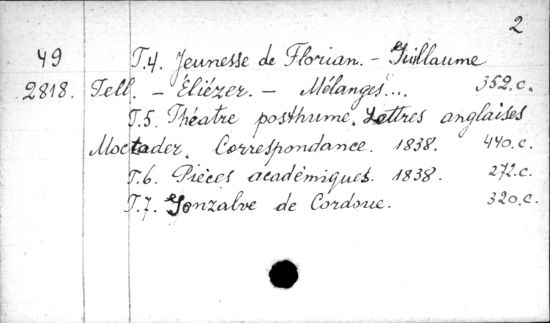 2
49 T.4. Jeunesse de Florian. - Guillaume
2818. Tell. - Éliézer. - Mélanges... 352.c.
T.5. Théatre posthume. Lettres anglaises
Moctader. Correspondance. 1838. 440.c.
T.6. Pièces académiques. 1838. 272.c.
T.7. Gonzalve de Cordoue. 320.c.